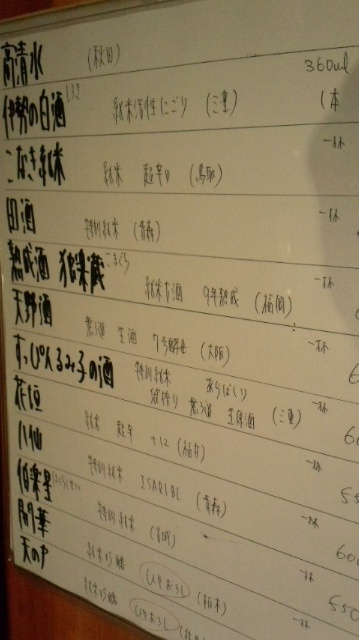 高清水 (秋田) 360ml
伊勢の白酒 純米活性にごり (三重) (本
こなき純米 純米 超辛口 (鳥取) 一杯
田酒 特別純米 (青森) 一杯
熟成酒 独楽蔵 こまぐら 純米古酒 9年熟成 (福岡) 一杯
天野酒 無ろ過 生酒 7号酵母 (大阪) 一杯
すっぴんるみ子の酒 特別純米 あらばしり
袋搾り 無ろ過 生原酒 (三重) 一杯 60
花垣 純米 超辛 +12 (福井) 一杯
八仙 特別純米 ISARIBI (青森) 一杯 55
伯楽星 特別純米 (宮城) 一杯 600
開華 純米吟醸 ひやおろし (栃木) 一杯 550
天の戸 純米吟醸 ひやおろし